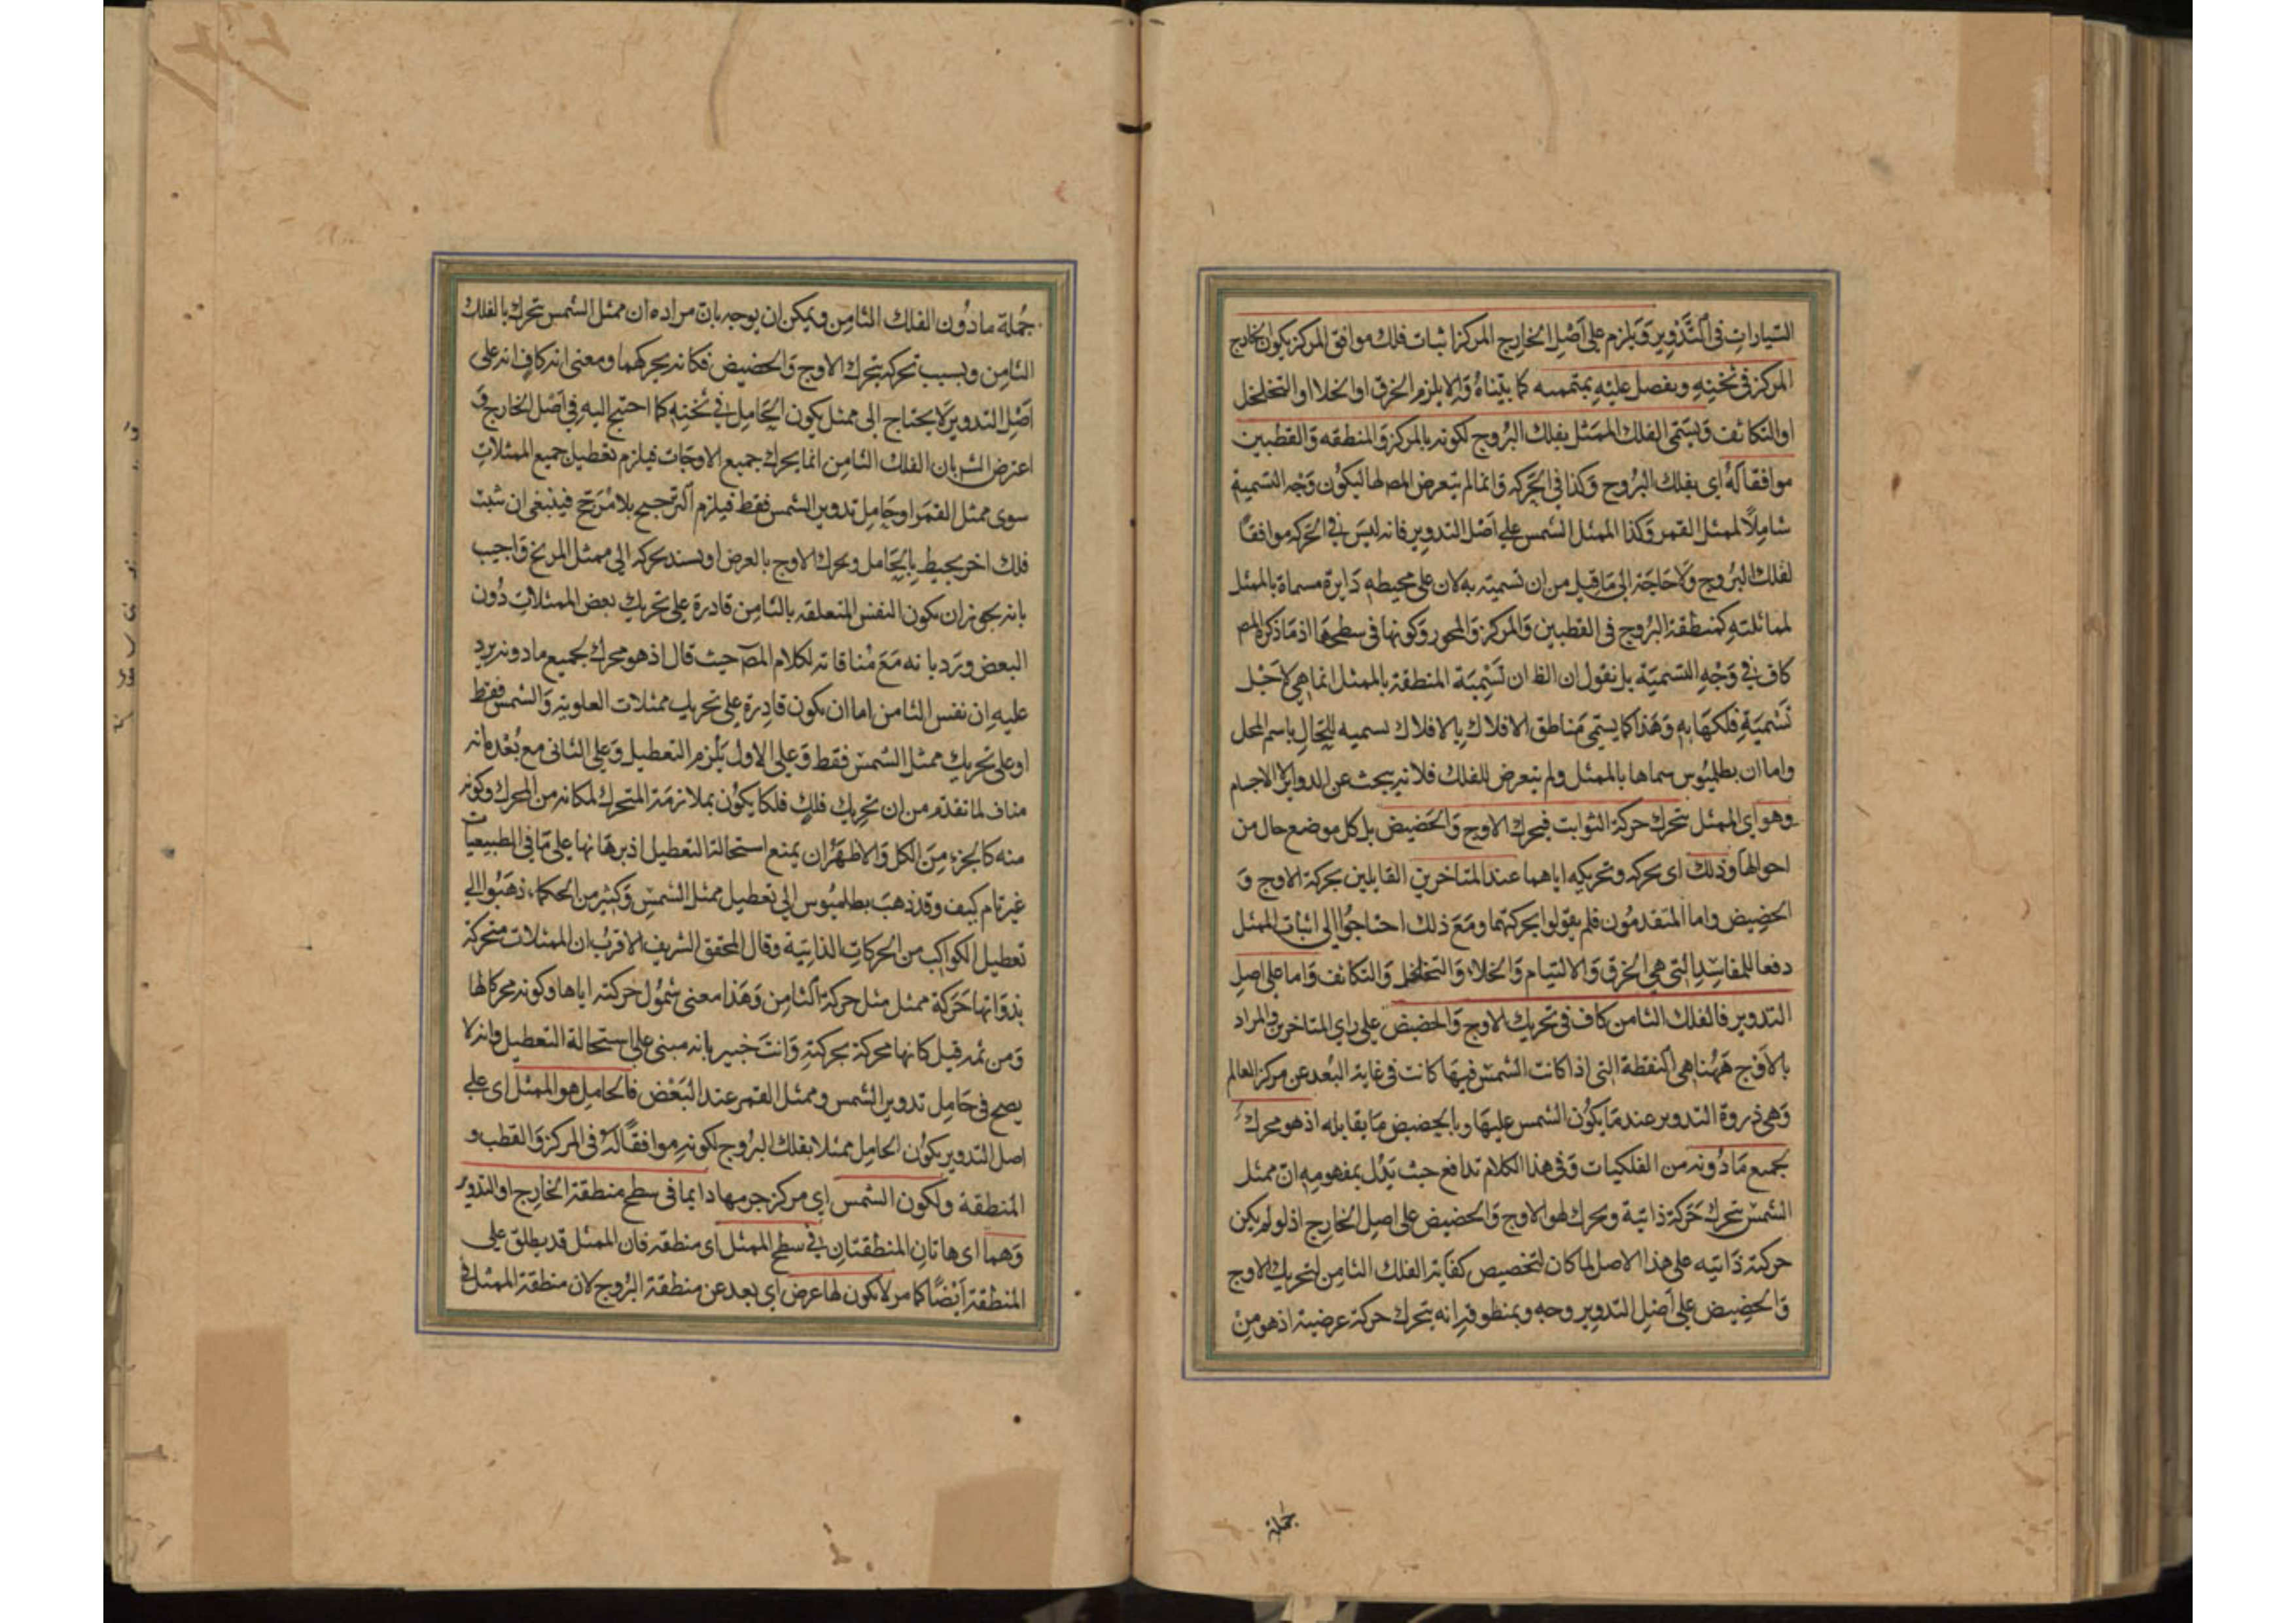 السيارات في التدوير ويلزم على اصل الخارج المركز اثبات فلك موافق المركز يكون الخارج
المركز في ثخنه ويفصل عليه بمتممه كما بيناه والا يلزم الخرق او الخلا او التخلخل
او التكاثف ويسمى الفلك الممثل بفلك البروج لكونه بالمركز والمنطقه والقطبين
موافقا له اى بفلك البروج وكذا في الحركه وانما لم يتعرض المص لها ليكون وجه التسمية
شاملا لممثل القمر وكذا الممثل الشمس على اصل التدوير فانه ليس في الحركه موافقا
لفلك البروج ولا حاجة الى ما قيل من ان تسميته به لان على محيطه دايرة مسماة بالممثل
لمماثلته كمنطقة البروج في القطبين والمركز والمحور وكونها في سطحها اذ ما ذكره المص
كاف في وجه التسمية بل نقول ان الظ ان تسمية المنطقة بالممثل انما هي لاجل
تسمية فلكها به وهذا كما يسمى مناطق الافلاك بالافلاك تسميه للحال باسم المحل
واما ان بطلميوس سماها بالممثل ولم يتعرض للفلك فلانه يبحث عن الدواير لا الاجسام
وهو اي الممثل يتحرك حركة الثوابت فيحرك الاوج والحضيض بل كل موضع حال من
احوالها وذلك اى تحركه وتحريكه اياهما عند المتاخرين القايلين بحركة الاوج و
الحضيض واما المتقدمون فلم يقولوا بحركتهما ومع ذلك احتاجوا الى اثبات الممثل
دفعا للمفاسد التي هي الخرق والالتيام والخلاء والتخلخل والتكاثف واما على اصل
التدوير فالفلك الثامن كاف في تحريك الاوج والحضيض على راي المتاخرين والمراد
بالاوج ههنا هي النقطة التي اذا كانت الشمس فيها كانت في غاية البعد عن مركز العالم
وهي ذروة التدوير عند ما يكون الشمس عليها وبالحضيض ما يقابله اذ هو محرك
لجميع ما دونه من الفلكيات وفي هذا الكلام تدافع حيث يدل بمفهومه ان ممثل
الشمس يتحرك حركة ذاتية ويحرك لهو الاوج والحضيض على اصل الخارج اذ لو لم يكن
حركته ذاتيه على هذا الاصل لما كان لتخصيص كفاية الفلك الثامن لتحريك الاوج
والحضيض على اصل التدوير وجه وبمنطوقه انه يتحرك حركة عرضية اذ هو من
جملة
جملة ما دون الفلك الثامن ويمكن ان يوجه بان مراده ان ممثل الشمس يتحرك بالفلك
الثامن وبسبب تحركه يتحرك الاوج والحضيض فكانه يحركهما ومعنى انه كاف انه على
اصل التدوير لا يحتاج الى ممثل يكون الحامل في ثخنه كما احتيج اليه في اصل الخارج و
اعترض الشر بان الفلك الثامن انما يحرك جميع الاوجات فيلزم تعطيل جميع الممثلات
سوى ممثل القمر او حامل تدوير الشمس فقط فيلزم الترجيح بلا مرجح فينبغى ان يثبت
فلك اخر يحيط بالحامل ويحرك الاوج بالعرض او يسند تحركه الى ممثل المريخ واجيب
بانه يجوز ان يكون النفس المتعلقه بالثامن قادرة على تحريك بعض الممثلات دون
البعض ويرد بانه مع منافاته لكلام المص حيث قال اذ هو محرك لجميع ما دونه يرد
عليه ان نفس الثامن اما ان يكون قادرة على تحريك ممثلات العلوية والشمس فقط
او على تحريك ممثل الشمس فقط وعلى الاول يلزم التعطيل وعلى الثاني مع بعده انه
مناف لما تقدم من ان تحريك فلك فلكا يكون بملازمة المتحرك لمكانه من المحرك وكونه
منه كالجزء من الكل والاظهر ان يمنع استحالة التعطيل اذ برهانها على ما في الطبيعيات
غير تام كيف وقد ذهب بطلميوس الى تعطيل ممثل الشمس وكثير من الحكماء ذهبوا الي
تعطيل الكواكب من الحركات الذاتية وقال المحقق الشريف الاقرب ان الممثلات متحركة
بذواتها حركة ممثل مثل حركة الثامن وهذا معنى شمول حركته اياها وكونه محركا لها
ومن ثمه قيل كانها محركة بحركته وانت خبير بانه مبنى على استحالة التعطيل وانه لا
يصح في حامل تدوير الشمس وممثل القمر عند البعض فالحامل هو الممثل اى على
اصل التدوير يكون الحامل ممثلا بفلك البروج لكونه موافقا له في المركز والقطب و
المنطقة ولكون الشمس اي مركز جرمها دايما في سطح منطقة الخارج او التدوير
وهما اى هاتان المنطقتان في سطح الممثل اى منطقته فان الممثل قد يطلق على
المنطقة ايضا كما مر لا يكون لها عرض اي بعد عن منطقة البروج لان منطقة الممثل في